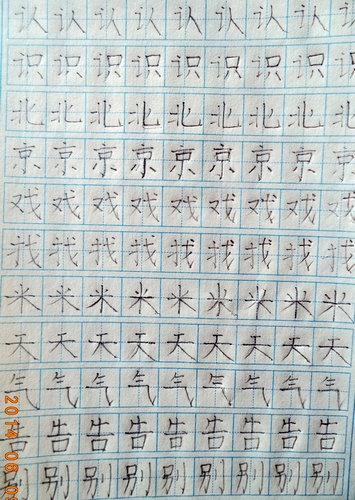 认认认认认认认认认
识识识识识识识识识
北北北北北北北北北
京京京京京京京京京
戏戏戏戏戏戏戏戏戏
找找找找找找找找找
米米米米米米米米米
天天天天天天天天天
气气气气气气气气气
告告告告告告告告告
别别别别别别别别别